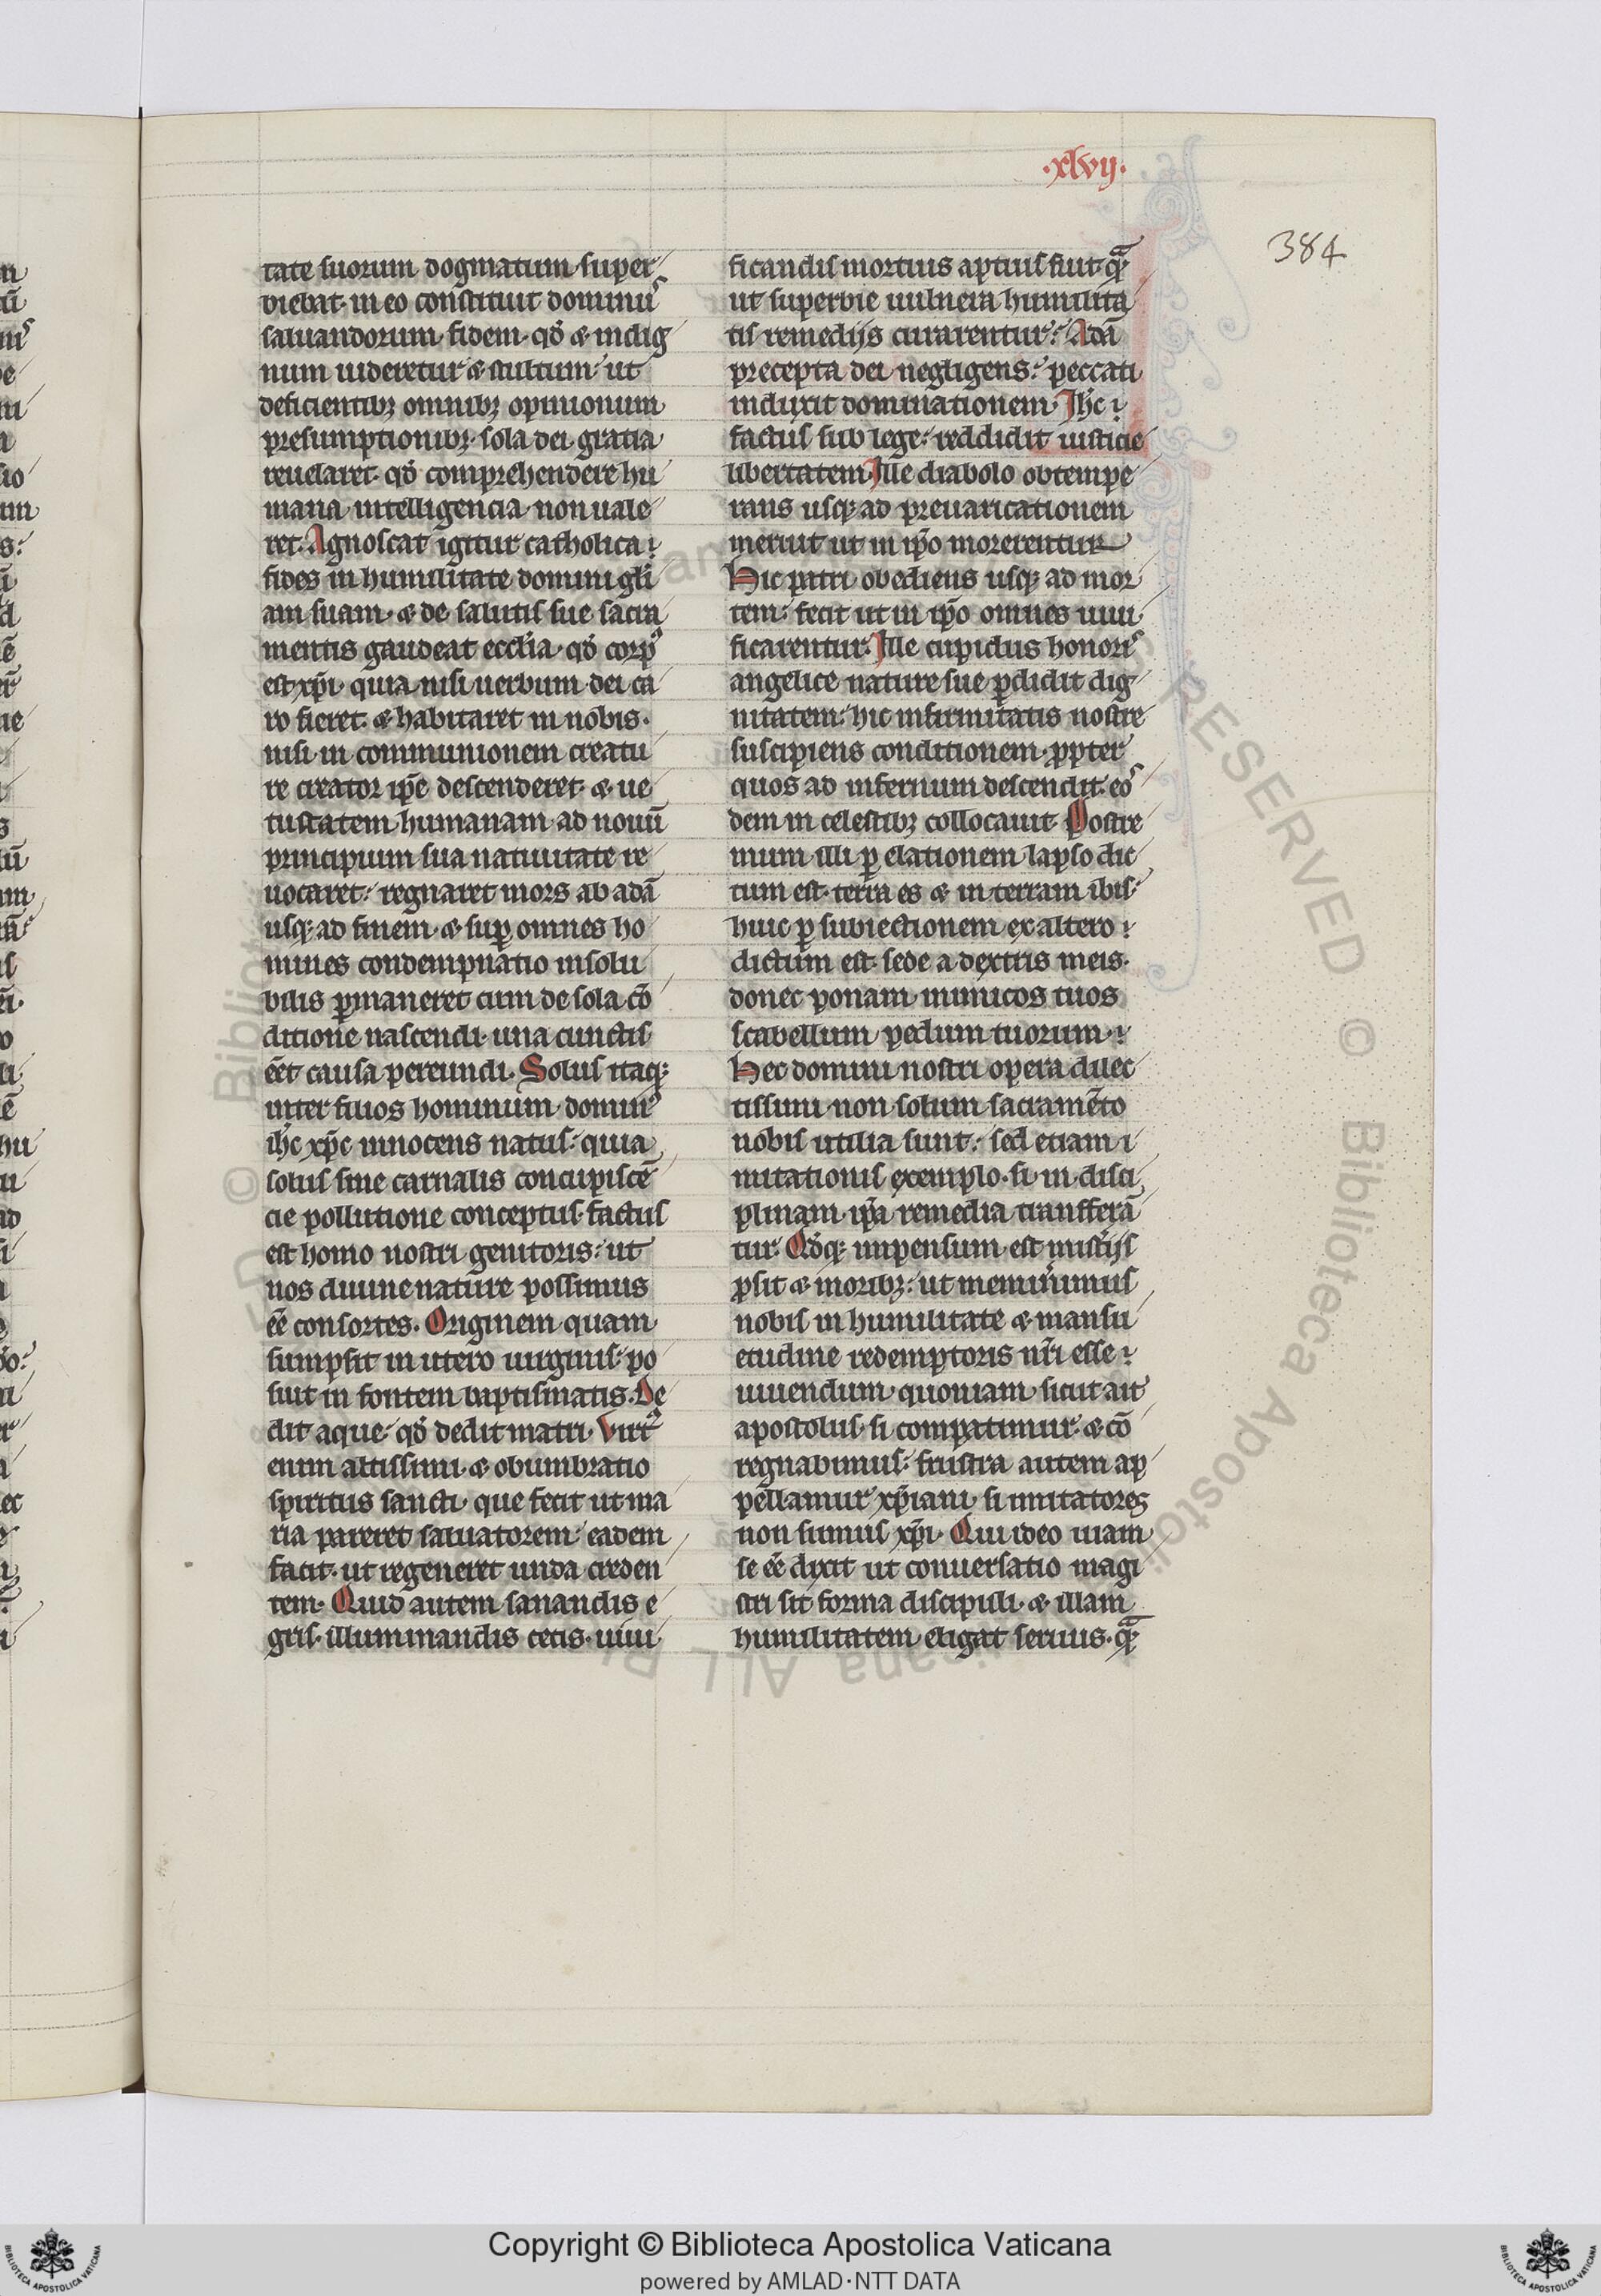 .xlvij.
384
tate suorum dogmatum super
biebat. in eo constituit dominus
saluandorum fidem. qđ & indig
num uideretur & stultum: ut
deficientibꝫ omnibꝫ opinionum
presumptionibꝫ. sola dei gratia
reuelaret. qđ comprehendere hu
mana intelligencia non uale
ret. Agnoscat igitur catholica
fides in humilitate domini gl̄i
am suam. & de salutis sue sacra
mentis gaudeat eccl̄ia. qđ corpꝰ
est xp̄i. quia nisi uerbum dei ca
ro fieret. & habitaret in nobis.
nisi in communionem creatu
re creator ip̄e descenderet. & ue
tustatem humanam ad nouū
principium sua natiuitate re
uocaret: regnaret mors ab adā
usqꝫ ad finem. & suꝑ omnes ho
mines condempnatio insolu
bilis ꝑmaneret cum de sola cō
ditione nascendi. una cunctis
eēt causa pereundi. Solus itaqꝫ
inter filios hominum dominꝰ
ih̄c xp̄c innocens natus: quia
solus sine carnalis concupiscē
cie pollutione conceptus. factus
est homo nostri genitoris: ut
nos diuine nature possimus
eē consortes. Originem quam
sumpsit in utero uirginis: po
suit in fontem baptismatis. De
dit aque: qđ dedit matri. Virtꝰ
enim altissimi. & obumbratio
spiritus sancti. que fecit ut ma
ria pareret saluatorem: eadem
facit. ut regeneret unda creden
tem. Quid autem sanandis e
gris. illuminandis cecis. uiui
ficandis mortuis aptius fuit. qᷓ
ut superbie uulnera humilita
tis remedijs curarentur: Adā
precepta dei negligens: peccati
induxit dominationem. Ih̄c
factus sub lege: reddidit iusticie
libertatem. Ille diabolo obtempe
rans usqꝫ ad preuaricationem
meruit ut in ip̄o morerentur
Hic patri obediens usqꝫ ad mor
tem: fecit ut in ip̄o omnes uiui
ficarentur. Ille cupidus honoris
angelice nature sue ꝑdidit dig
nitatem: hic infirmitatis nostre
suscipiens conditionem. ꝓpter
quos ad infernum descendit. eos
dem in celestibꝫ collocauit. Postre
mum illi ꝑ elationem lapso dic
tum est. terra es & in terram ibis:
huic ꝑ subiectionem exaltero
dictum est. sede a dextris meis.
donec ponam inimicos tuos
scabellum pedum tuorum.
Hec domini nostri opera dilec
tissimi non solum sacramēto
nobis utilia sunt: sed etiam i
mitationis exemplo. si in disci
plinam ip̄a remedia transferā
tur. Qđqꝫ impensum est mist̄ijs
ꝓsit & moribꝫ: ut meminerimus
nobis in humilitate & mansu
etudine redemptoris nr̄i esse
uiuendum quoniam sicut ait
apostolus. si compatimur. & cō
regnabimus: frustra autem ap
pellamur xp̄iani. si imitatores
non sumus xp̄i. Qui ideo uiam
se eē dixit ut conuersatio magi
stri sit forma discipuli. & illam
humilitatem eligat seruus. qᷓ
Copyright © Biblioteca Apostolica Vaticana
powered by AMLAD·NTT DATA